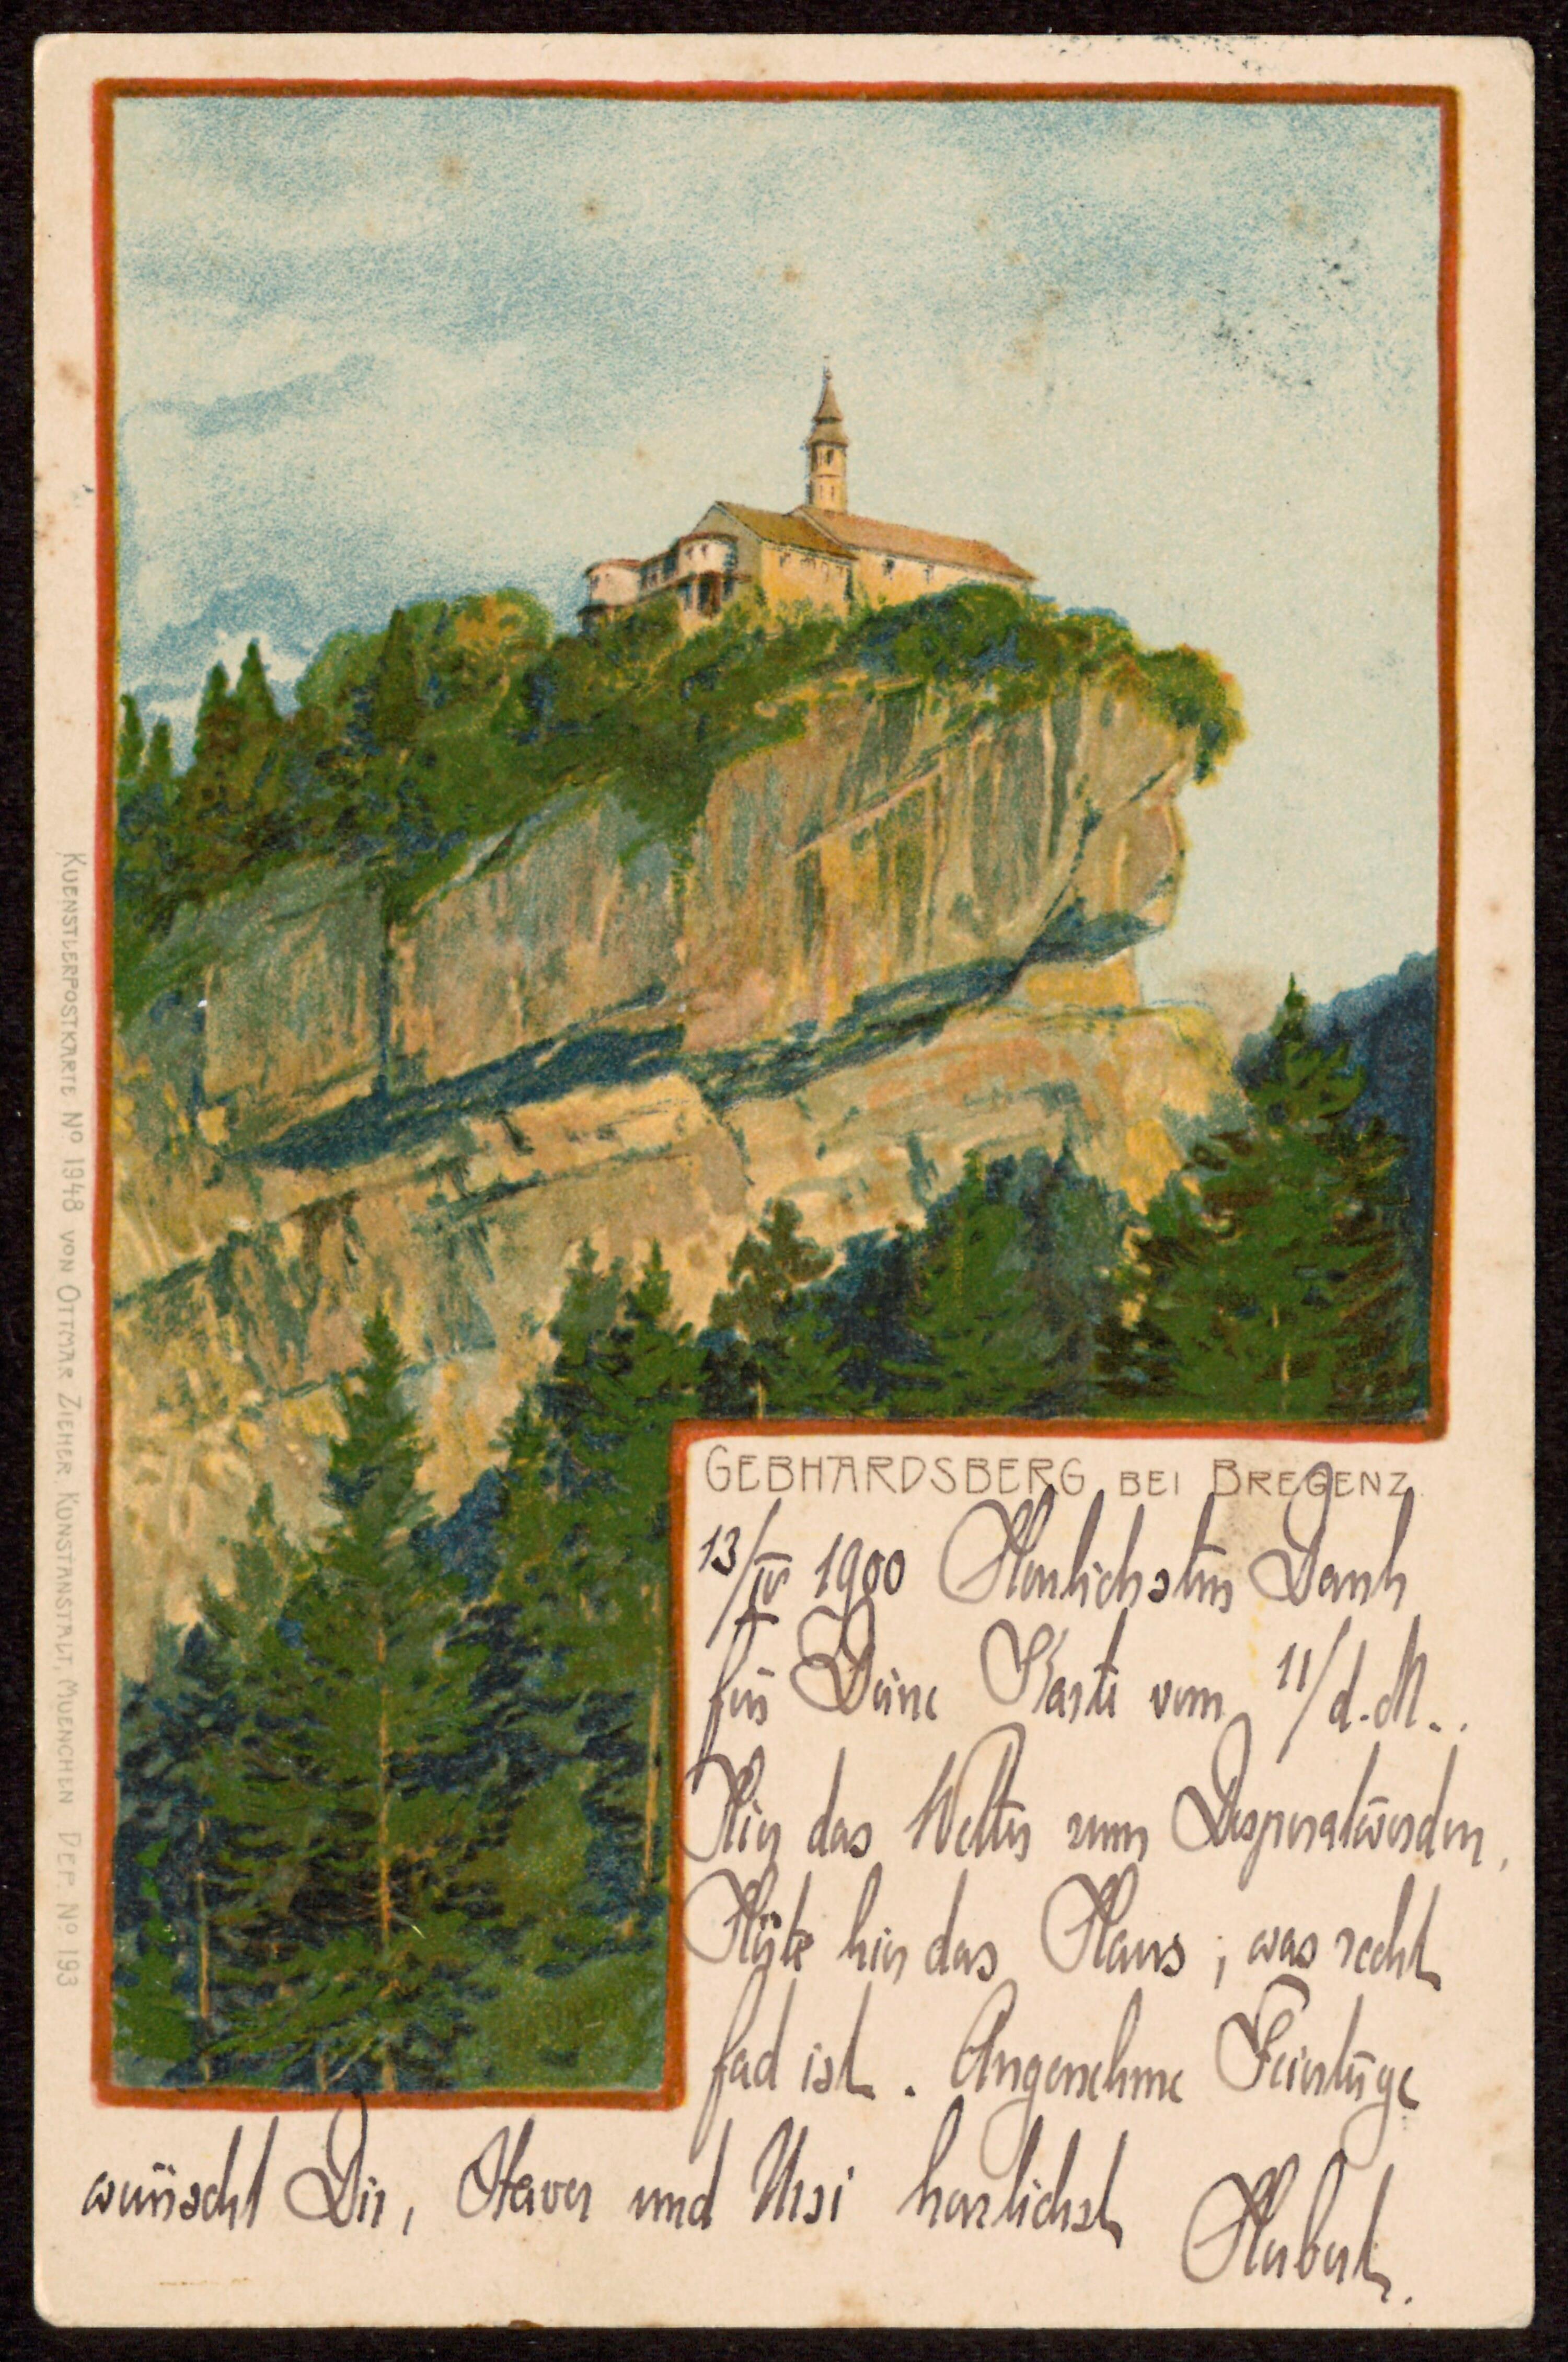 KUENSTLERPOSTKARTE No 1948 VON OTTMAR ZIEHER KUNSTANSTALT, MUENCHEN DEP. No 193
GEBHARDSBERG BEI BREGENZ
13/IV 1900 Herzlichsten Dank
für Deine Karte vom 11/d. M..
Hier das Wetter zum Desperatwerden,
Hüte hier das Haus, was recht
fad ist. Angenehme Feiertage
wünscht Dir, und Ursi herzlichst
Herbert.